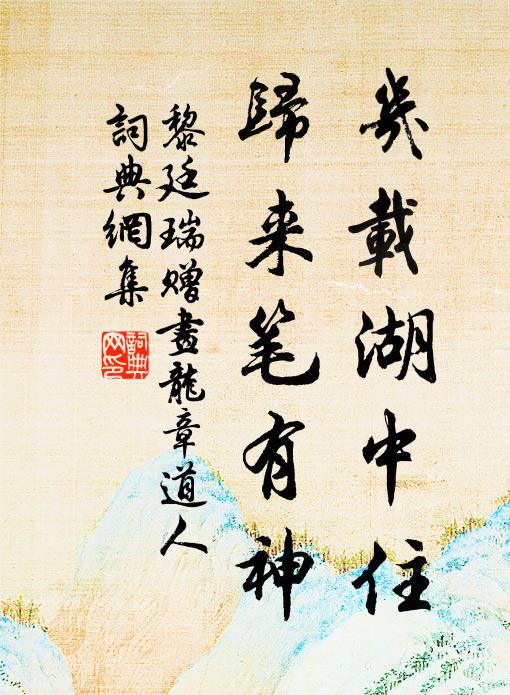 幾載湖中住
歸来笔有神
黎廷瑞赠畫龍章道人
詞典網集
詞典
网印